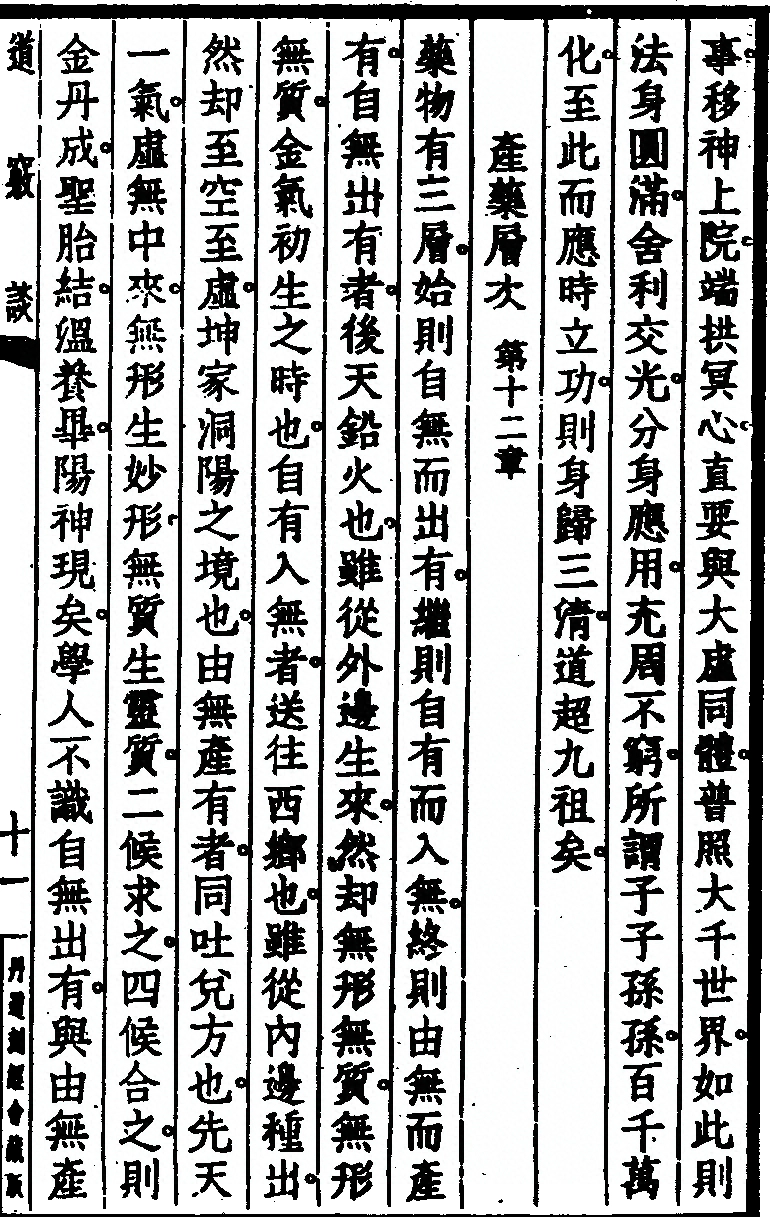 事移神上院端拱冥心直要與大虛同體普照大千世界如此則
法身圓滿舍利交光分身應用充周不窮所謂子子孫孫百千萬
化至此而應時立功則身歸三清道超九祖矣
產藥層次 第十二章
藥物有三層始則自無而出有繼則自有而入無終則由無而產
有自無出有者後天鉛火也雖從外邊生來然却無形無質無形
無質金氣初生之時也自有入無者送往西鄉也雖從內邊種出
然却至空至虛坤家洞陽之境也由無產有者同吐兌方也先天
一氣虛無中來無形生妙形無質生靈質二候求之四候合之則
金丹成聖胎結溫養畢陽神現矣學人不識自無出有與由無產
道竅談 十一 丹道刻經會藏版